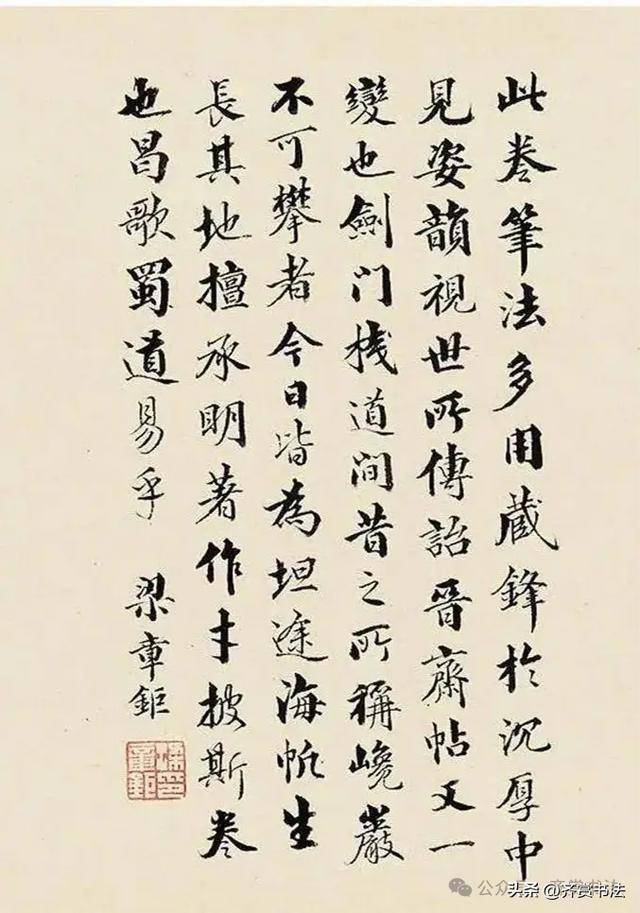 此卷筆法多用藏鋒於沉厚中
見姿韻視世所傳詒晉齋帖又一
變也劍门棧道间昔之所稱巉巖
不可攀者今日皆為坦途海帆生
長其地擅承明著作才披斯卷
也昌歌蜀道易乎
梁章鉅
梁章鉅印
头条 @齐贵书法